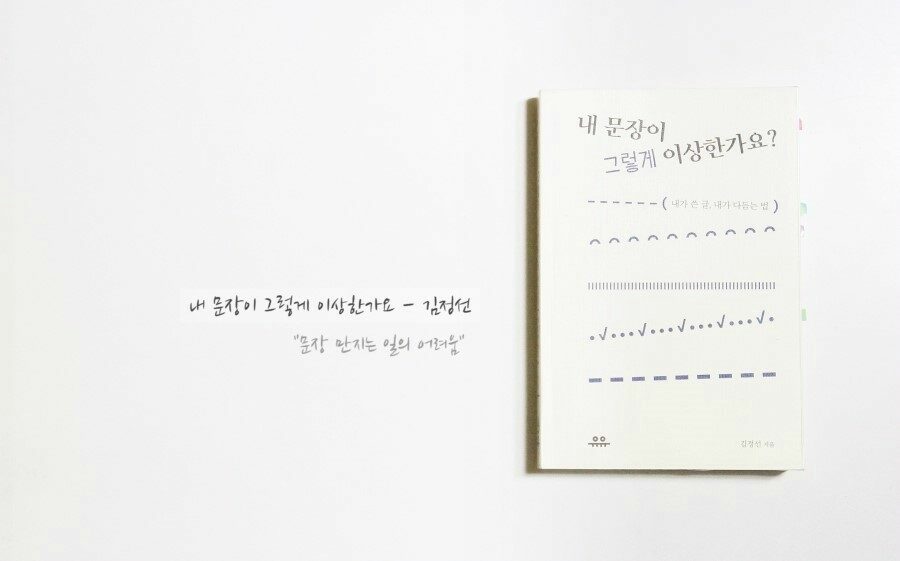 내 문장이 그렇게 이상한가요 - 김정선
"문장 만지는 일의 어려움"
내 문장이
그렇게 이상한가요?
( 내가 쓴 글, 내가 다듬는 법 )
유유
김정선 지음